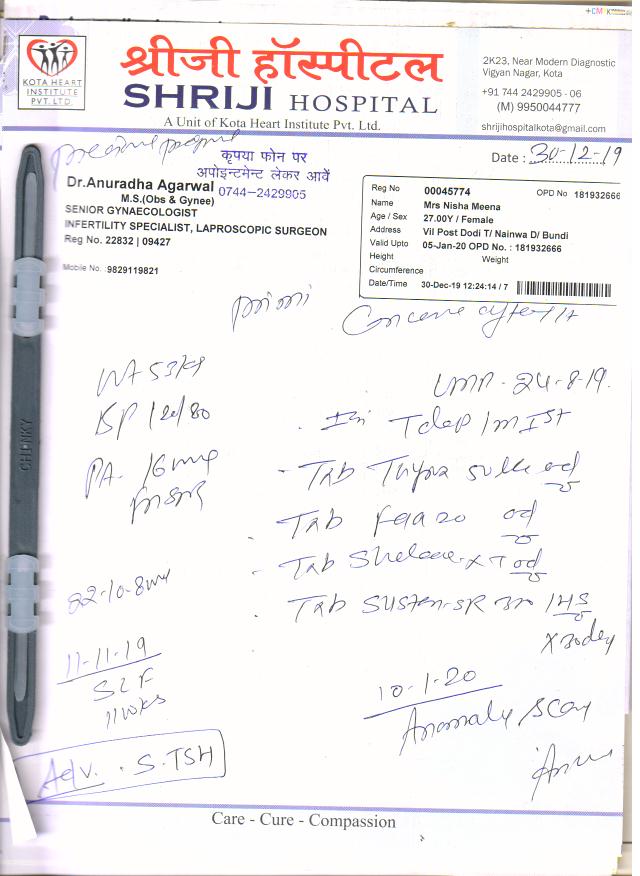 KOTA HEART
INSTITUTE
PVT. LTD.
श्रीजी हॉस्पीटल
SHRIJI HOSPITAL
A Unit of Kota Heart Institute Pvt. Ltd.
2K23, Near Modern Diagnostic
Vigyan Nagar, Kota
+91 744 2429905 - 06
(M) 9950044777
shrijihospitalkota@gmail.com
कृपया फोन पर
अपोइन्टमेन्ट लेकर आवें
0744-2429905
Date : 30-12-19
Dr.Anuradha Agarwal
M.S.(Obs & Gynee)
SENIOR GYNAECOLOGIST
INFERTILITY SPECIALIST, LAPROSCOPIC SURGEON
Reg No. 22832 | 09427
Mobile No. 9829119821
Reg No 00045774 OPD No 181932666
Name Mrs Nisha Meena
Age / Sex 27.00Y / Female
Address Vil Post Dodi T/ Nainwa D/ Bundi
Valid Upto 05-Jan-20 OPD No. : 181932666
Height Weight
Circumference
Date/Time 30-Dec-19 12:24:14 / 7
primi
Conceive after
Wt 53 kg
BP 120/80
PA. 16
LMP - 24-8-19.
Inj IM Ist
Tab od
Tab od
Tab od
Tab Susten-SR HS
x 30 day
22-10-8
11-11-19
SLF
11 wks
10-1-20
Anomaly scan
Adv. S. TSH
CHENKY
Care - Cure - Compassion